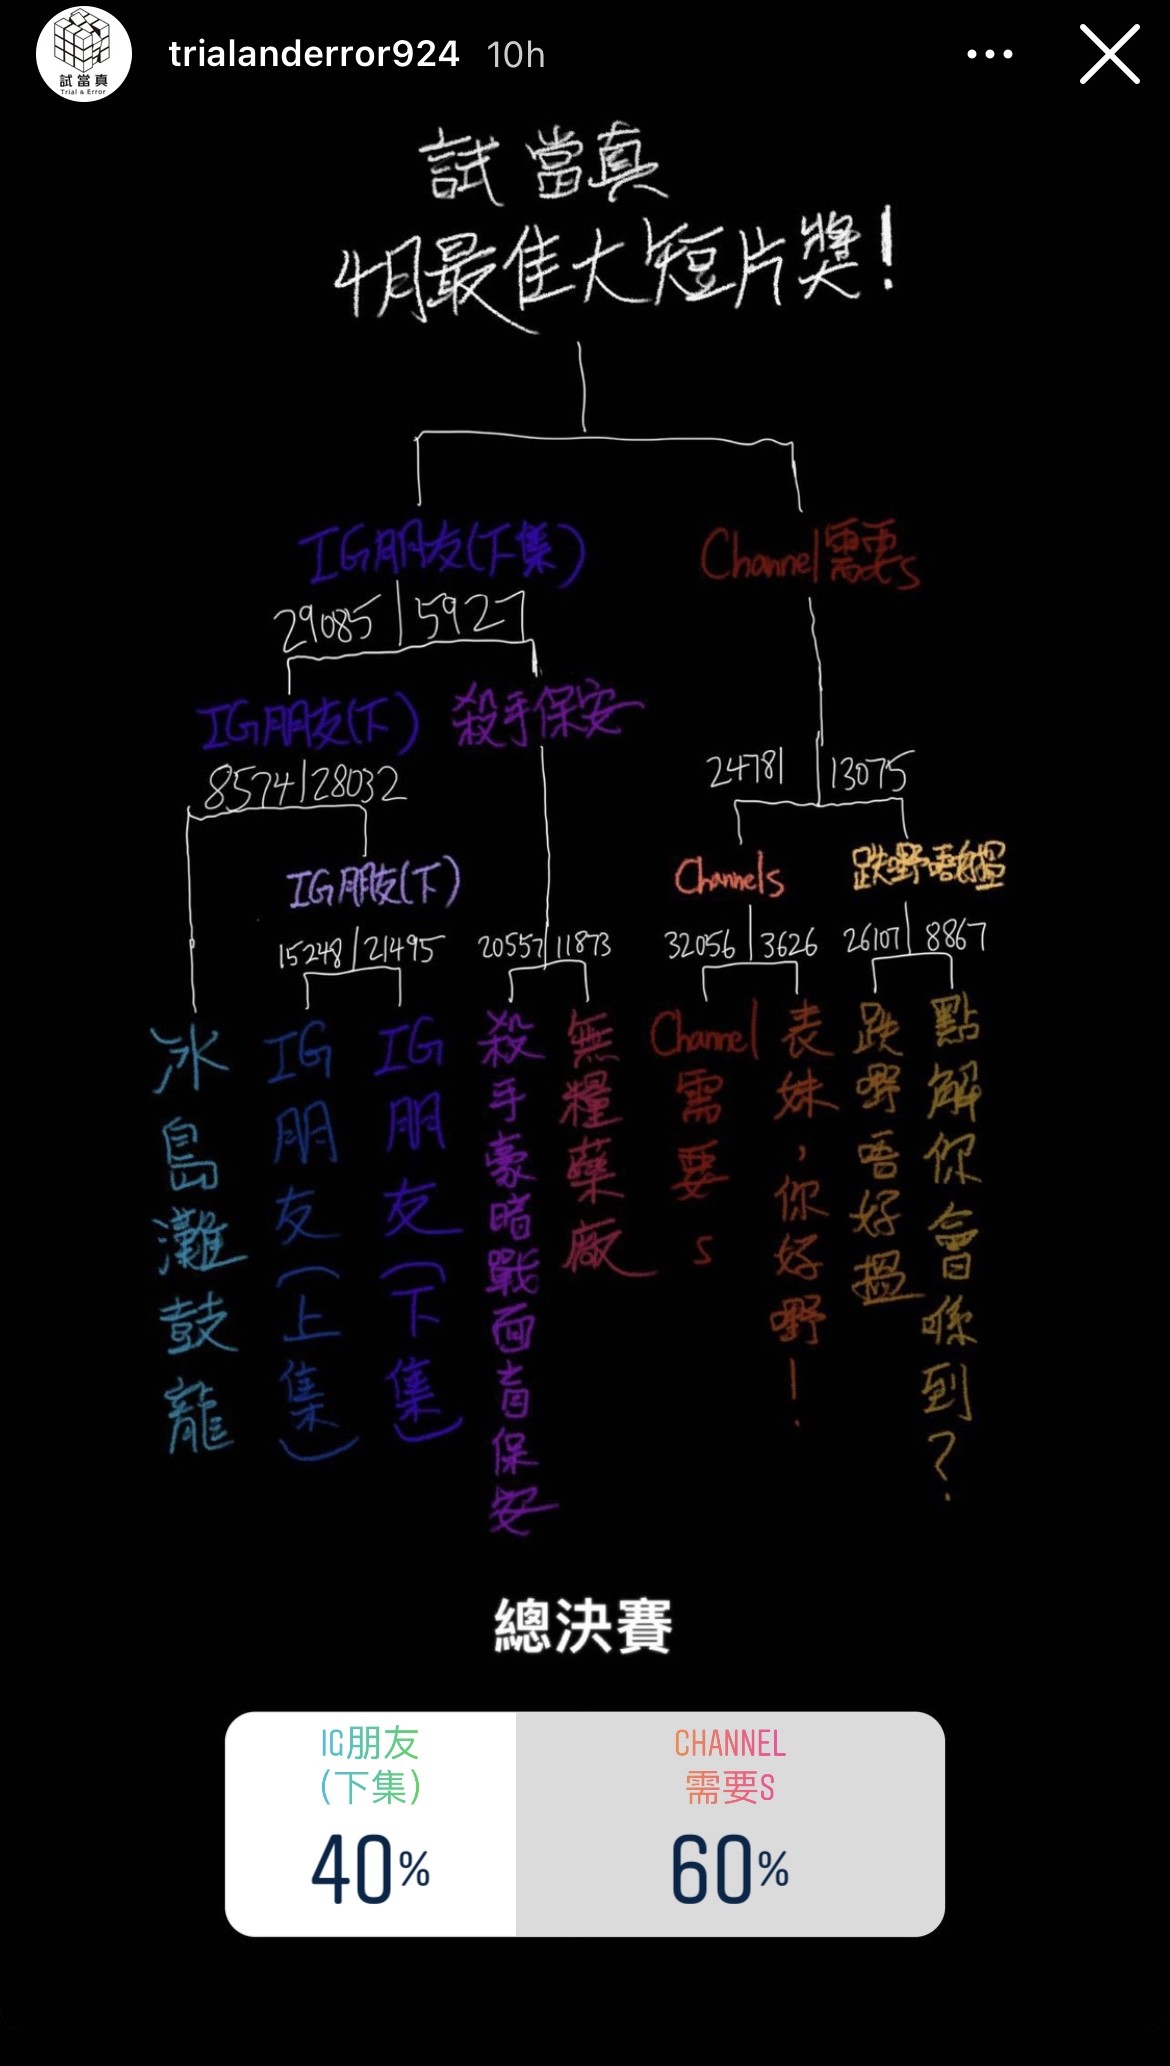 試當真
Trial & Error
trialanderror924 10h
試當真
4月最佳大短片獎!
IG朋友(下集)
Channel需要s
29085 | 5927
IG朋友(下)
殺手保安
8574 | 28032
24781 | 13075
IG朋友(下)
Channels
跌嘢唔好搵
15248 | 21495
20557 | 11873
32056 | 3626
26107 | 8867
冰島灘鼓龍
IG朋友(上集)
IG朋友(下集)
殺手豪暗戰面盲保安
無糧藥廠
Channel需要s
表妹,你好嘢!
跌嘢唔好搵
點解你會喺到?
總決賽
IG朋友
(下集)
40%
CHANNEL
需要S
60%